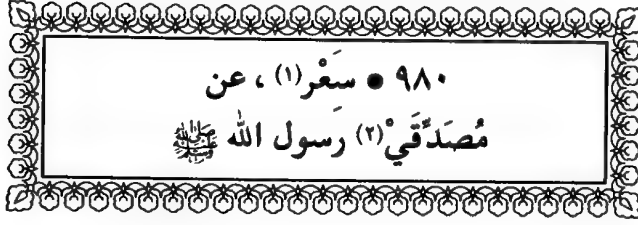 ٩٨٠ • سَعْر(١) ، عن
مُصَدَّقَيْ(٢) رسول الله ﷺ